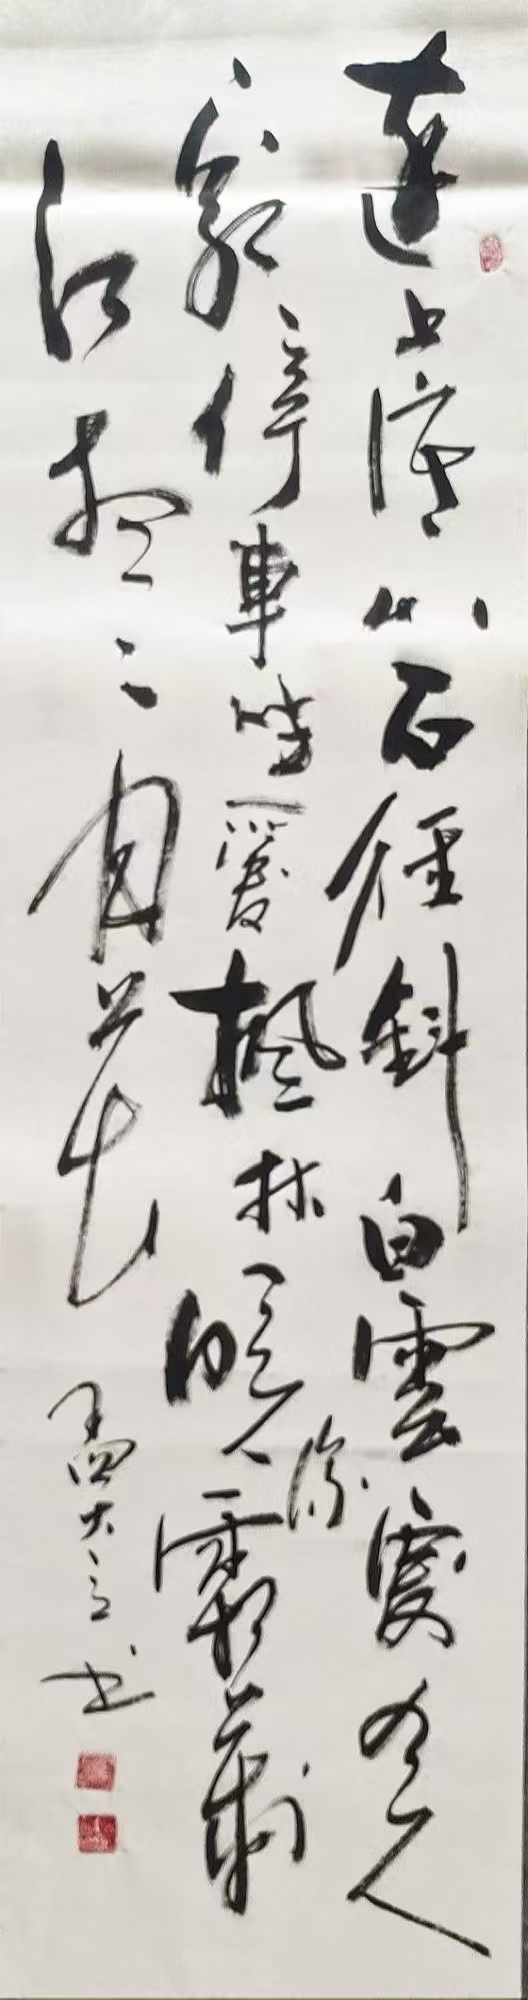 遠上寒山石徑斜白雲深處有人
家停車坐愛楓林晚霜葉
紅於二月花 孟大立书